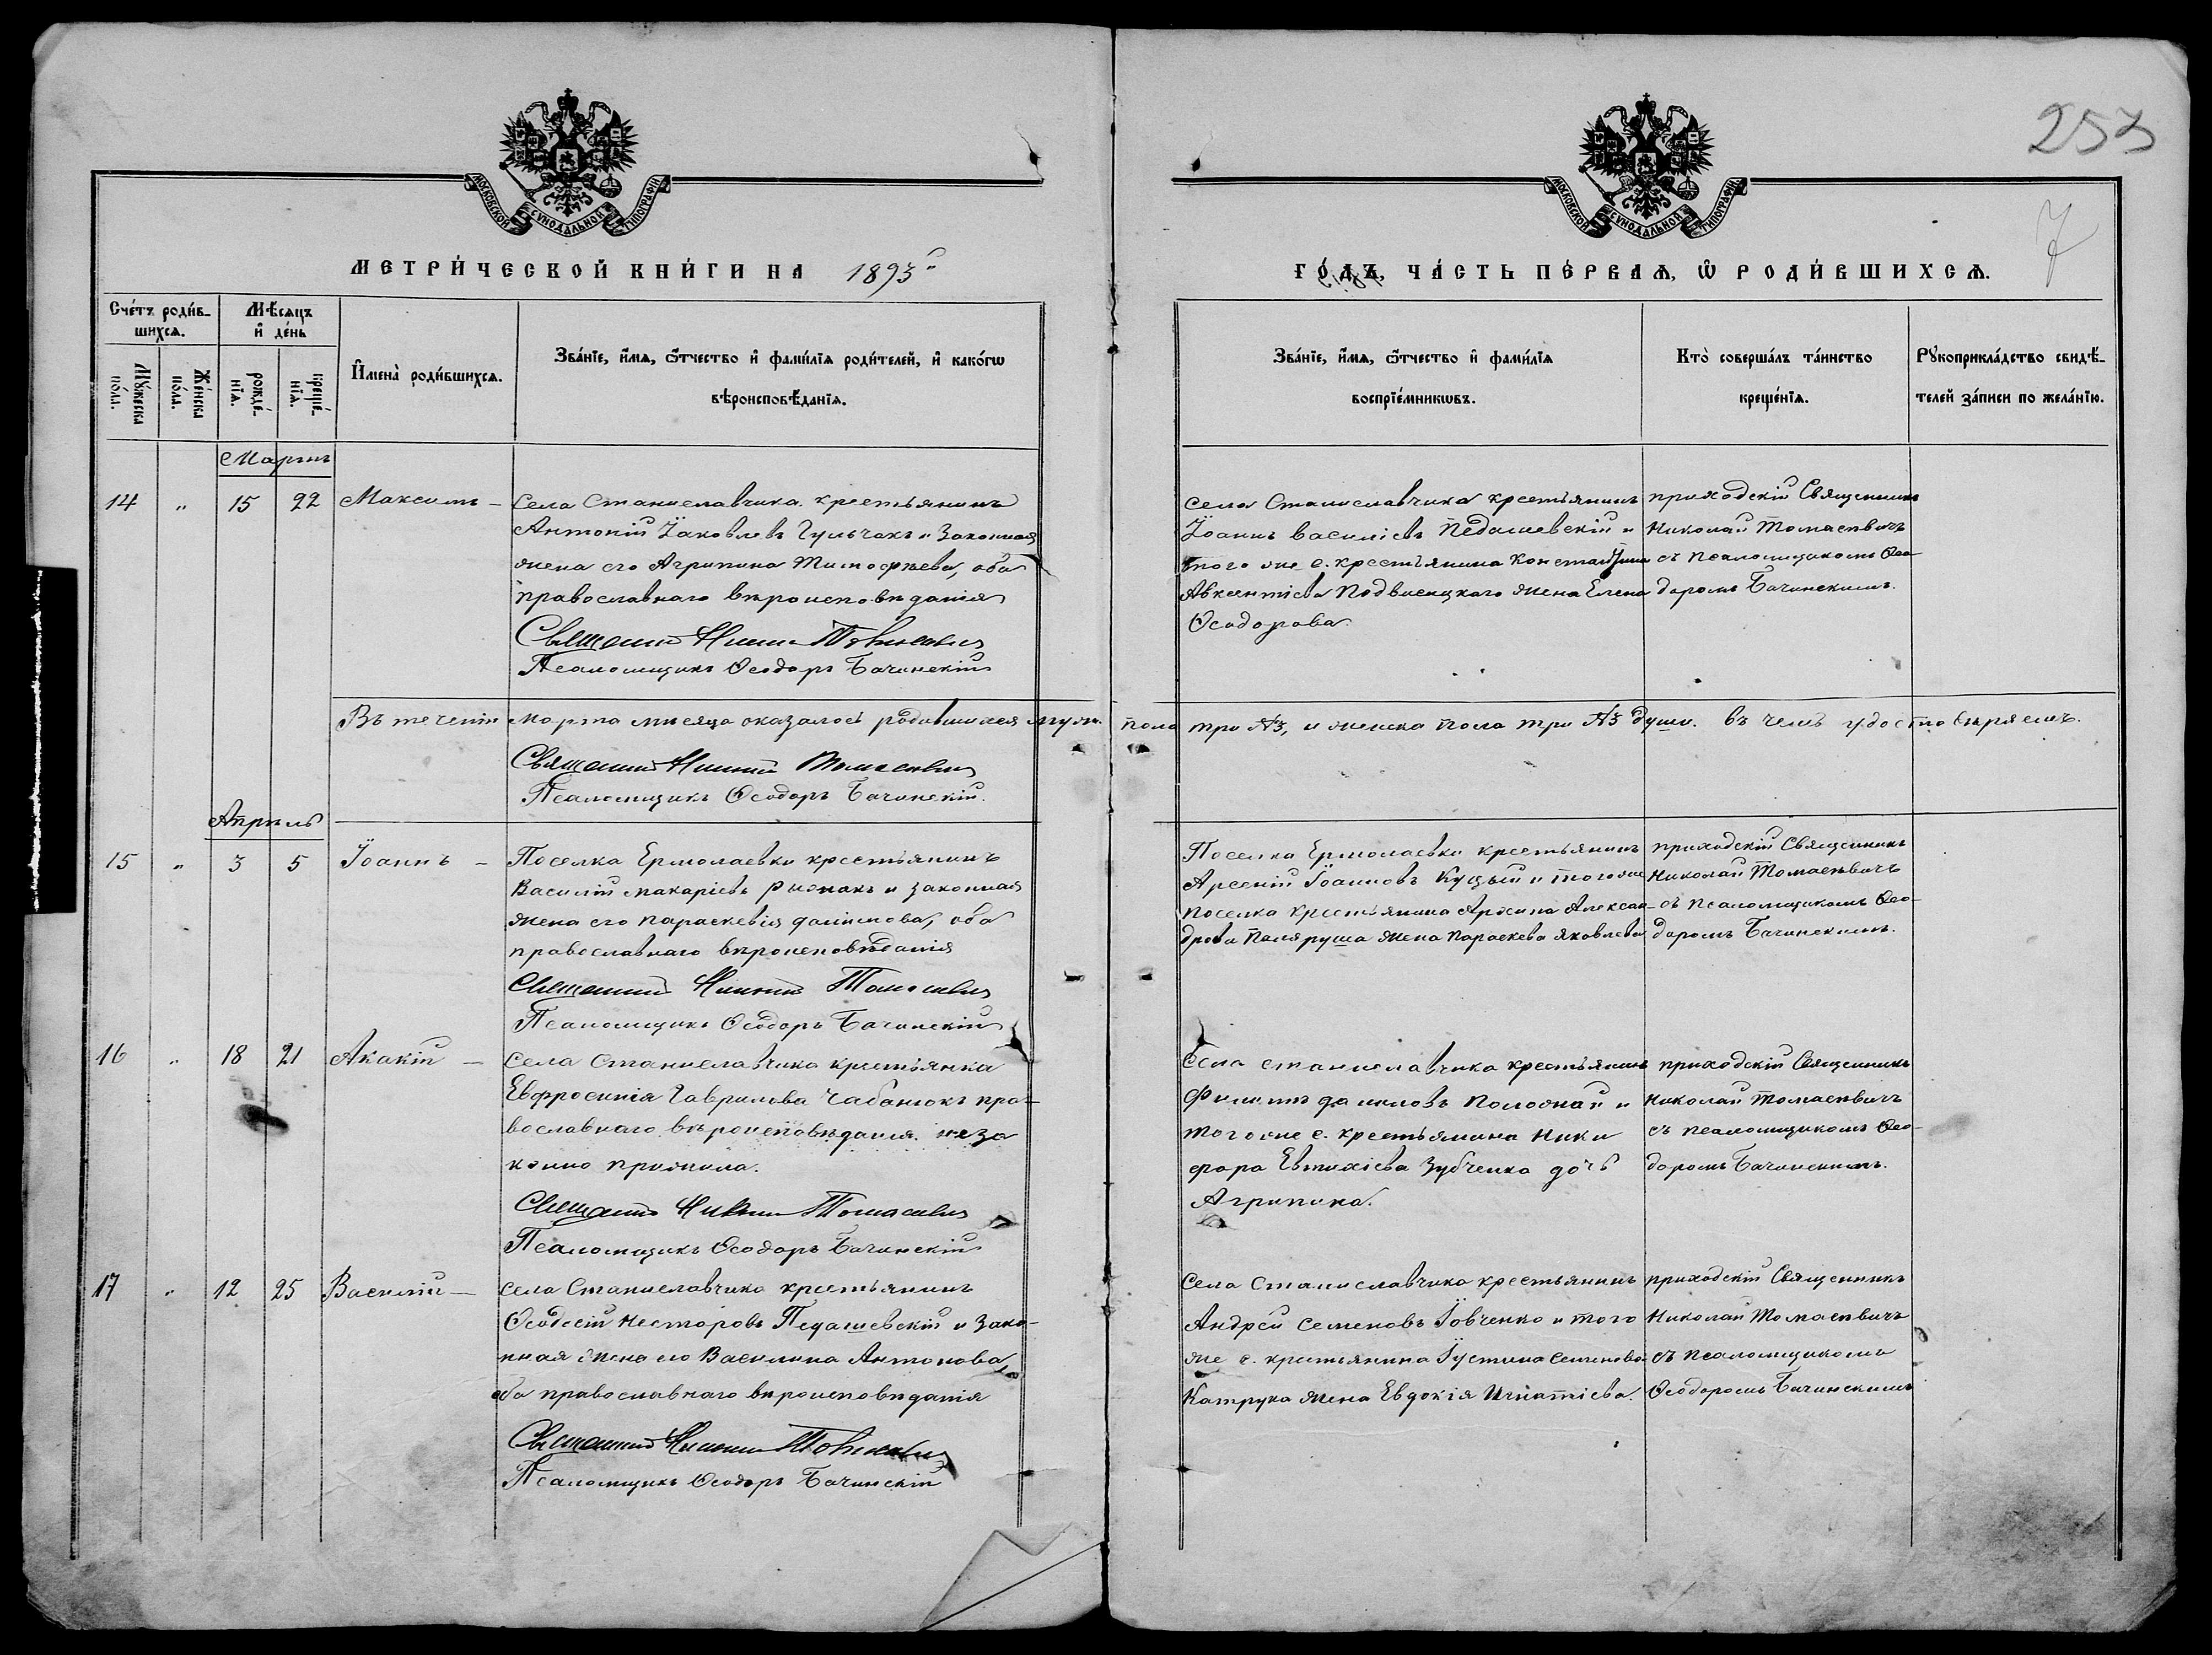 253
7
МОСКОВСКОЙ СѴНОДАЛЬНОЙ ТИПОГРАФІИ
МОСКОВСКОЙ СѴНОДАЛЬНОЙ ТИПОГРАФІИ
МЕТРИ́ЧЕСКОЙ КНИ́ГИ НА 1893й
ГО́ДЪ, ЧА́СТЬ ПЕ́РВАѦ, Ѡ РОДИ́ВШИХСѦ.
Сче́тъ роди́в-
шихсѧ.
Мѣ́сяцъ
и҆ де́нь
Мꙋ́жеска
по́ла.
Же́нска
по́ла.
рожде́-
нїѧ.
креще́-
нїѧ.
И҆мена̀ роди́вшихсѧ.
Зва́нїе, и҆́мѧ, ѻ҆́тчество и҆ фами́лїѧ роди́телей, и҆ како́гѡ
вѣроисповѣ́данїѧ.
Зва́нїе, и҆́мѧ, ѻ҆́тчество и҆ фами́лїѧ
воспрїе́мникѡвъ.
Кто̀ соверша́лъ та́инство
креще́нїѧ.
Рꙋкоприкла́дство свидѣ́-
телей за́писи по жела́нїю.
Мартъ
14 " 15 22 Максимъ -
Села Станиславчика крестьянинъ
Антоній Іаковлевъ Гульчакъ и Законная
жена его Агрипина Тимофѣева, оба
православнаго вѣроисповѣданія
Священникъ Николай Томасевичъ
Псаломщикъ Ѳеодоръ Бачинскій
Села Станиславчика крестьянинъ
Іоаннъ Василіевъ Педашевскій и
того же с. крестьянина Константина
Авксентіева Подвысоцкаго жена Елена
Ѳеодорова.
приходскій Священникъ
Николай Томасевичъ
съ Псаломщикомъ Ѳео-
доромъ Бачинскимъ.
Въ теченіи Марта мѣсяца оказалось родившихся муж. пола три №3, и женска пола три №3 души. въ чемъ удостовѣряемъ.
Священникъ Николай Томасевичъ
Псаломщикъ Ѳеодоръ Бачинскій.
Апрѣль
15 " 3 5 Іоаннъ -
Поселка Ермолаевки крестьянинъ
Василій Макаріевъ Рыжакъ и законная
жена его Параскевія Даніилова, оба
православнаго вѣроисповѣданія
Священникъ Николай Томасевичъ
Псаломщикъ Ѳеодоръ Бачинскій
Поселка Ермолаевки крестьянинъ
Арсеній Іоанновъ Куцый и того же
поселка крестьянина Алексан-
дрова Паляруша жена Параскева Яковлева
приходскій Священникъ
Николай Томасевичъ
съ Псаломщикомъ Ѳео-
доромъ Бачинскимъ.
16 " 18 21 Акакій -
Села Станиславчика крестьянка
Евфросинія Гаврилова Чабанюкъ пра-
вославнаго вѣроисповѣданія неза
конно прижила.
Священникъ Николай Томасевичъ
Псаломщикъ Ѳеодоръ Бачинскій
Села Станиславчика крестьянинъ
Филиппъ Даниловъ Положай и
того же с. крестьянина Ники
фора Евтихіева Зубченка дочь
Агрипина.
приходскій Священникъ
Николай Томасевичъ
съ псаломщикомъ Ѳео-
доромъ Бачинскимъ.
17 " 12 25 Василій -
Села Станиславчика крестьянинъ
Ѳеодосій Несторовъ Педашевскій и зако-
нная жена его Василина Антонова
оба православнаго вѣроисповѣданія
Священникъ Николай Томасевичъ
Псаломщикъ Ѳеодоръ Бачинскій
Села Станиславчика крестьянинъ
Андрей Семеновъ Іовченко и того
же с. крестьянина Іустина Семенова
Катрука жена Евдокія Игнатіева.
приходскій Священникъ
Николай Томасевичъ
съ псаломщикомъ
Ѳеодоромъ Бачинскимъ